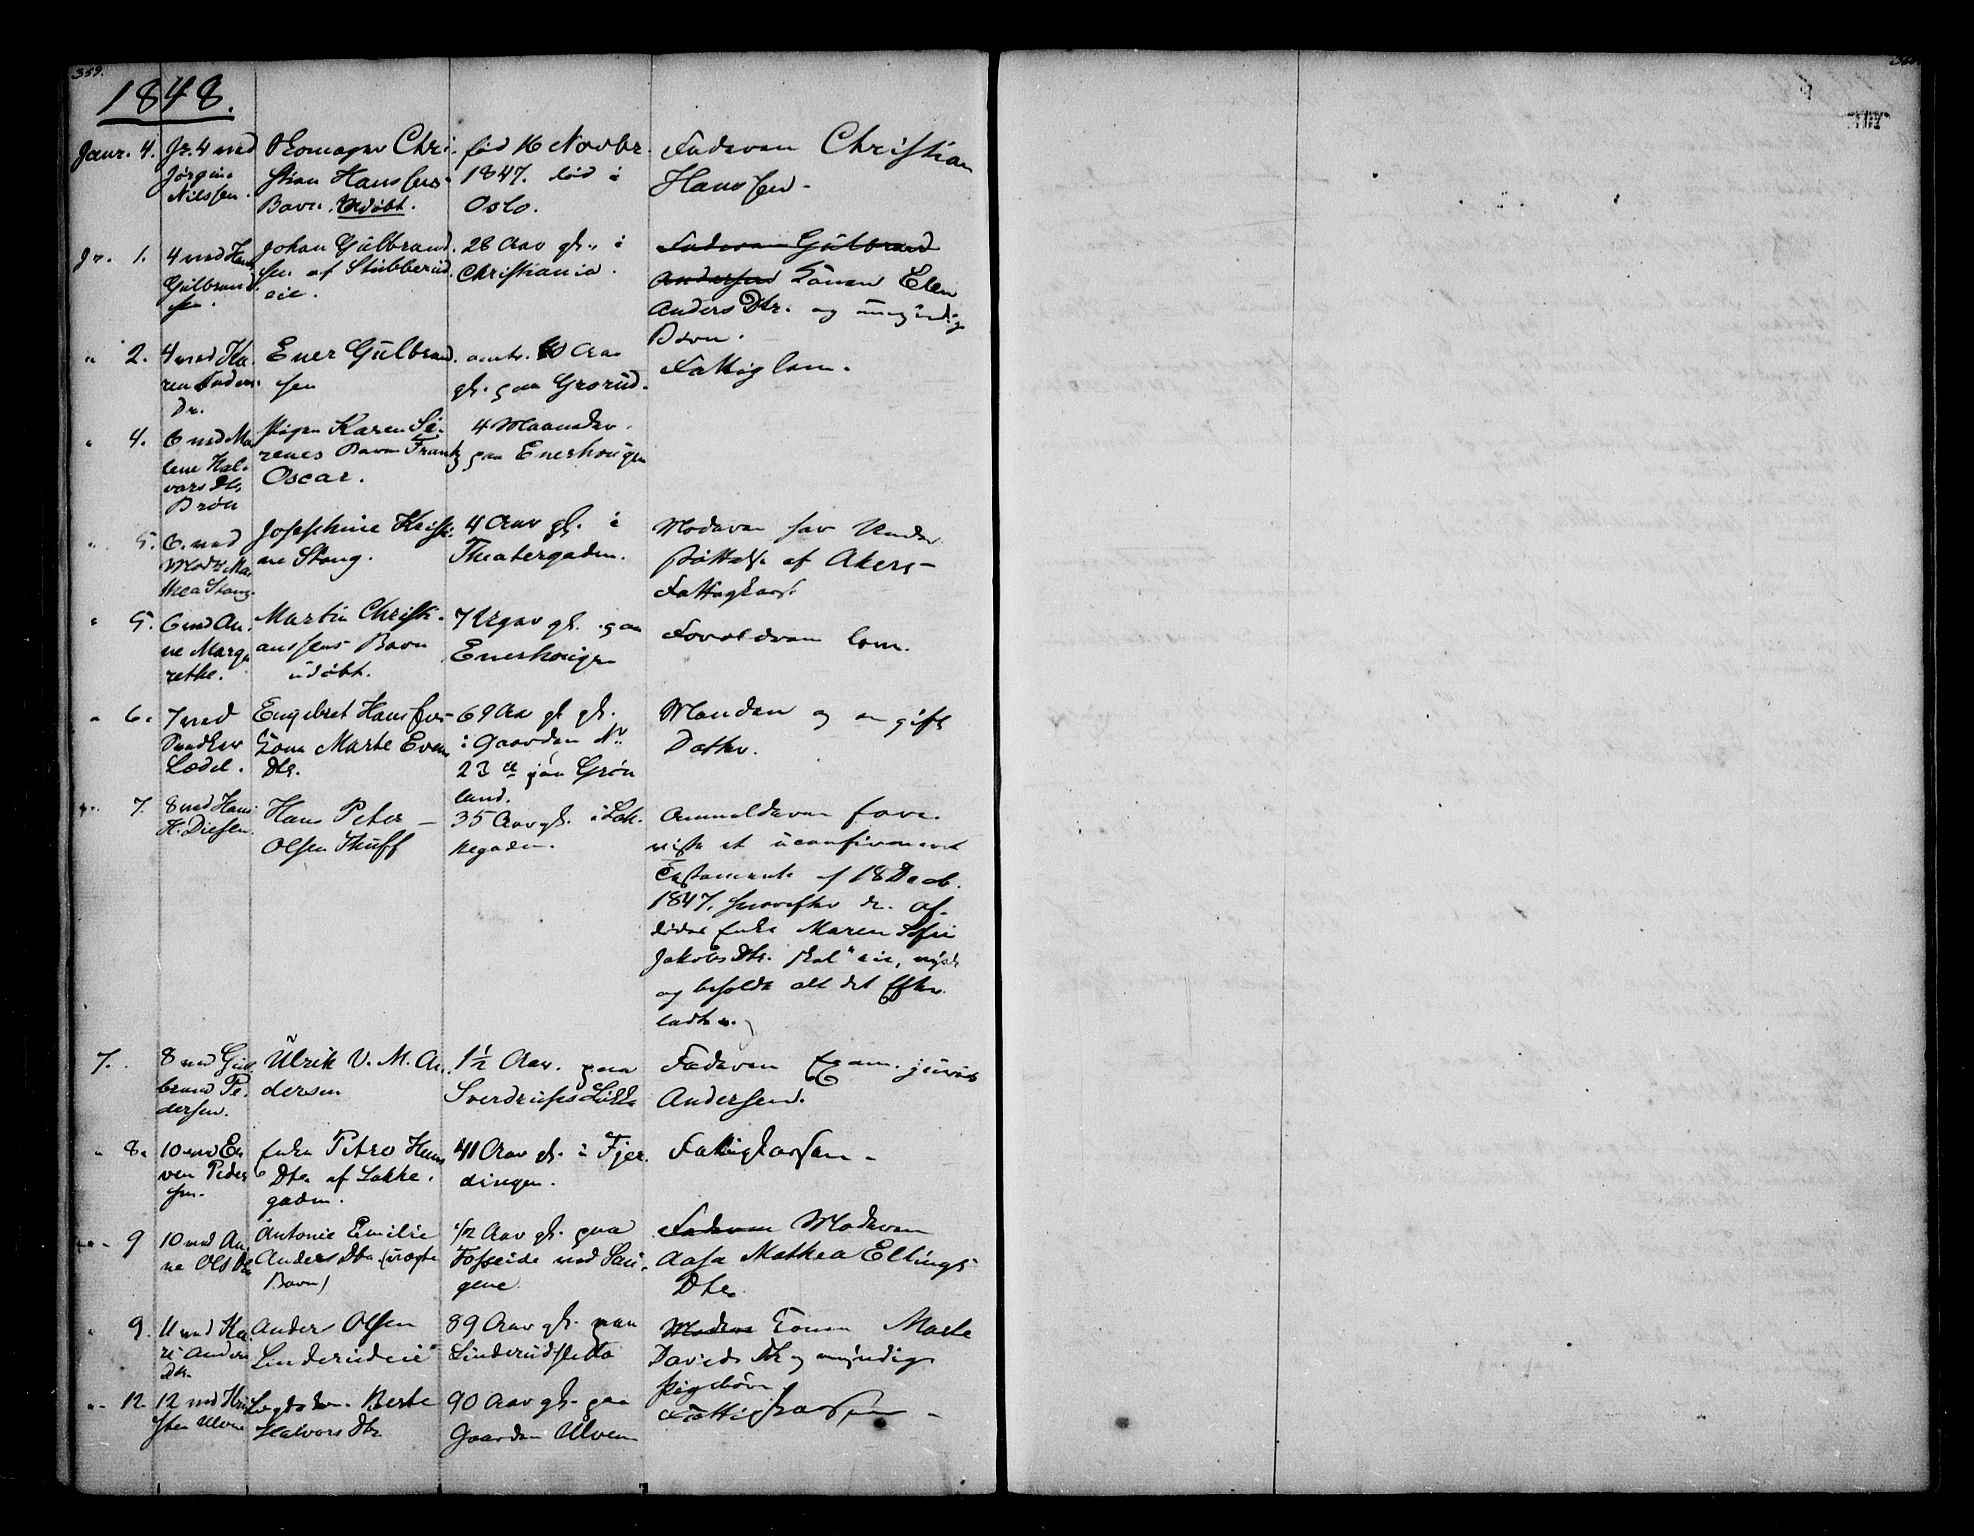 359.
1848.
Janr. 4.
Jr. 4 med
Jørgine
Nilssen.
Skomager Chri-
stian Hanssens
Barn. Udøbt.
fød 16 Novbr.
1847. død i
Oslo.
Faderen Christian
Hanssen.
Jr. 1.
4 med Hans
Gulbrand
sen.
Johan Gulbrand-
sen af Stubberud
eie.
28 Aar gl. i
Christiania.
Faderen Gulbrand
Andersen Konen Elen
Anders Dtr. og umyndige
Børn.
" 2.
4 med Ka-
ren Anders
Dr.
Ener Gulbrand-
sen
omtr. 40 Aar
gl. paa Grorud.
Fattiglem.
" 4.
6 med Ma-
lene Hal-
vors Dtr.
Brøn
Pigen Karen Se-
renes Barn Frantz
Oscar.
4 Maaneder.
paa Enerhougen
" 5.
6. med
Modr. Ma-
thea Stang.
Josephine Kristi-
ane Stang.
4 Aar gl. i
Theatergaden.
Moderen har Under-
støttelse af Akers-
Fattigkasse.
" 5.
6 med An-
ne Marg-
rethe.
Martin Christi-
anssens Barn
udøbt.
7 Uger gl. paa
Enerhougen
Forældrene leve.
" 6.
7 med
Lodel.
Engebret Hanssens
Kone Marte Evens
Dtr.
69 Aar gl.
i Gaarden No.
23 a paa Grøn
land.
Manden og en gift
Datter.
7.
8 med Hans
H. Diesen.
Hans Peter
Olsen Thuff
35 Aar gl. i Lak-
kegaden.
Anmelderen fore-
viste et uconfirmeret
Testamente af 18 Decb.
1847. hvorefter den af-
dødes Enke Maren Sofie
Jakobs Dtr. skal "eie, nyde
og beholde alt det Efter-
ladte".
7.
8 med Gul-
brand Pe-
dersen.
Ulrik V. M. An-
dersen
1½ Aar. paa
Sverdrups Løkke
Faderen Exam. juris
Andersen.
" 8.
10 med E-
ven Peder
sen.
Enke Petro Hans
Dtr. af Lakke-
gaden.
41 Aar gl. i Fjer-
dingen.
Fattigkassen.
" 9
10 med An-
ne Ols Dtr
Antonie Emilie
Anders Dtr. (uægte
Barn)
1/2 Aar gl. paa
Fosseeide ved Sau-
gene.
Faderen Moderen
Aasa Mathea Ellings
Dtr.
" 9.
11 med Ka-
ri Anders
Dtr.
Anders Olsen
Linderudeie
89 Aar gl. paa
Linderudsletta
Moderen Konen Marte
Davids Dtr og umyndige
Pigebørn
" 12
12 med Kri-
sten Ulven
Lægdslem. Berte
Halvors Dtr
90 Aar gl. paa
Gaarden Ulven
Fattigkassen